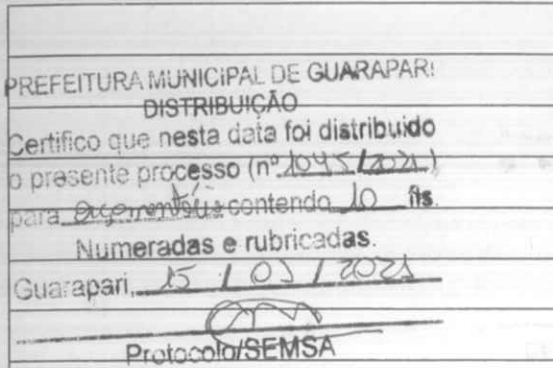 PREFEITURA MUNICIPAL DE GUARAPARI
DISTRIBUIÇÃO
Certifico que nesta data foi distribuido
o presente processo (nº 1045/2021)
para contendo 10 fls.
Numeradas e rubricadas.
Guarapari, 15 / 03 / 2021
Protocolo/SEMSA